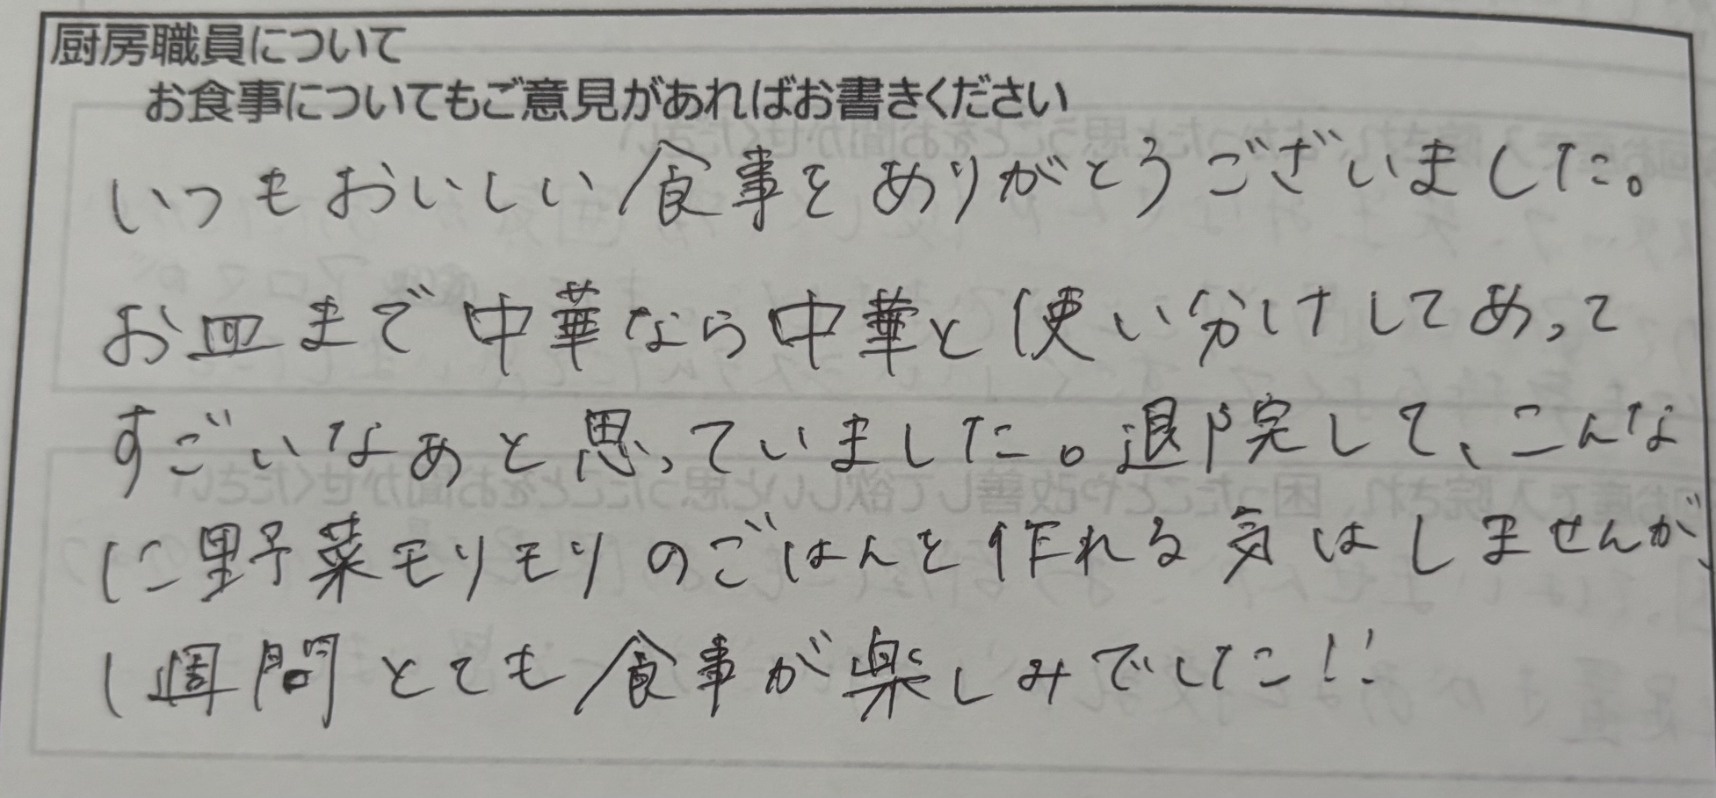 厨房職員について
お食事についてもご意見があればお書きください
いつもおいしい食事をありがとうございました。
お皿まで中華なら中華と使い分けしてあって
すごいなぁと思っていました。退院して、こんな
に野菜モリモリのごはんを作れる気はしませんが、
1週間とても食事が楽しみでした!!